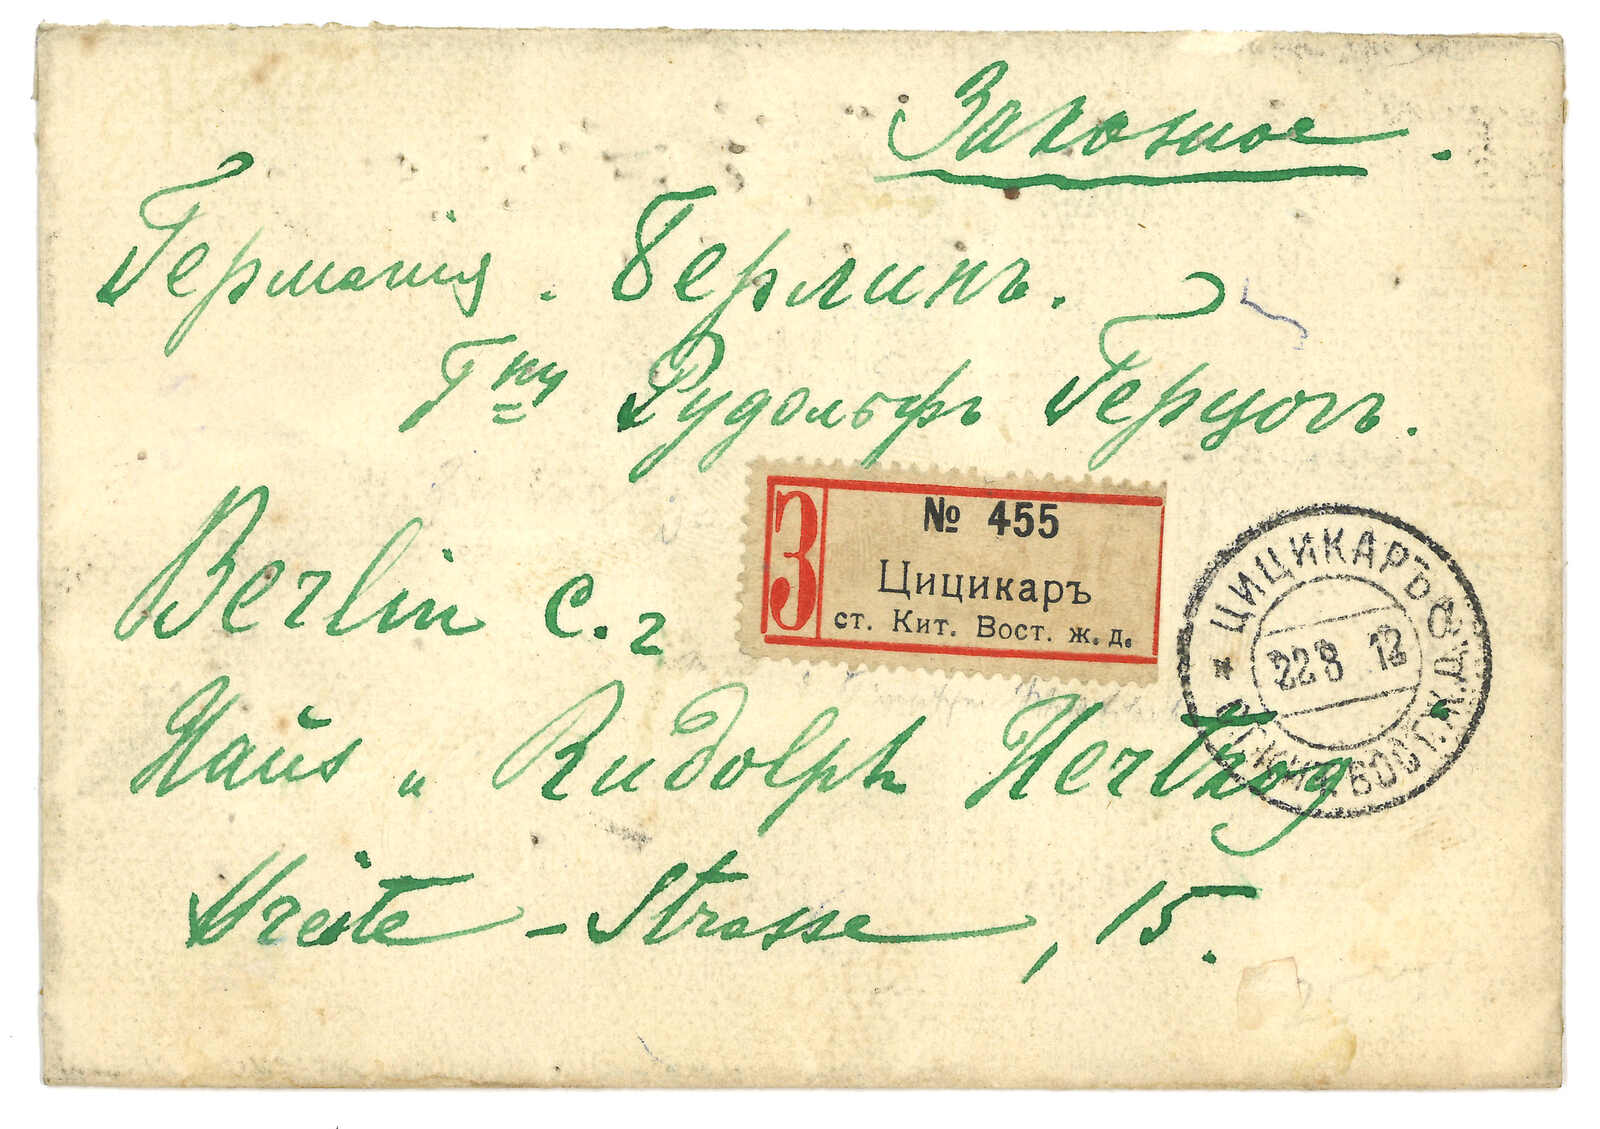 Заказное.
Германія. Берлинъ.
Гну Рудольфъ Герцогъ.
Berlin C. 2
Haus „ Rudolph Hertzog
Breite-Strasse, 15.
З
№ 455
Цицикаръ
ст. Кит. Вост. ж. д.
ЦИЦИКАРЪ
22 8 12